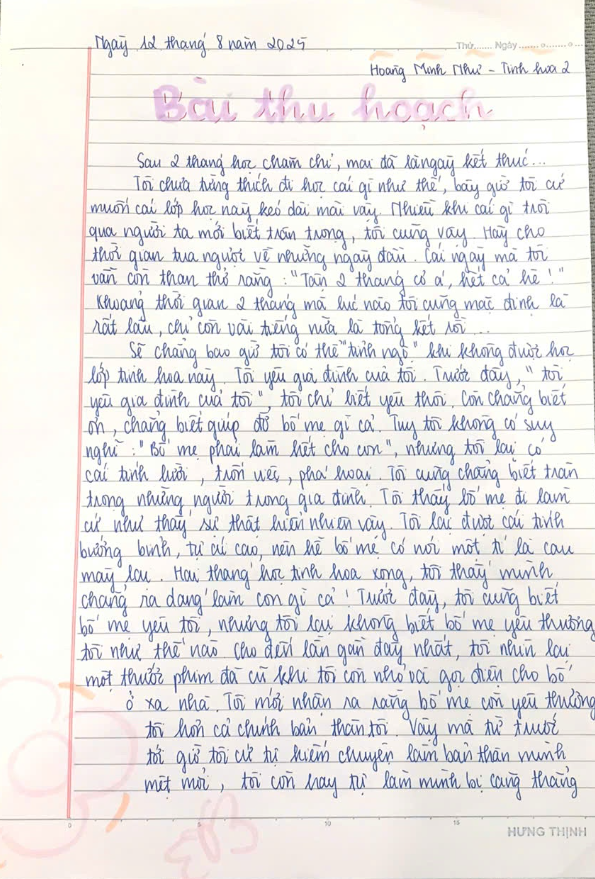 Ngày 12 tháng 8 năm 2025
Thứ...... Ngày......
Hoàng Minh Như - Tinh hoa 2
Bài thu hoạch
Sau 2 tháng học chăm chỉ, mai đã là ngày kết thúc...
Tôi chưa từng thích đi học cái gì như thế, bây giờ tôi cứ
muốn cái lớp học này kéo dài mãi vậy. Nhiều khi cái gì trôi
qua người ta mới biết trân trọng, tôi cũng vậy. Hãy cho
thời gian tua ngược về những ngày đầu. Cái ngày mà tôi
vẫn còn than thở rằng: "Tận 2 tháng cơ á, hết cả hè!"
Khoảng thời gian 2 tháng mà lúc nào tôi cũng mặc định là
rất lâu, chỉ còn vài tiếng nữa là tổng kết rồi...
Sẽ chẳng bao giờ tôi có thể "tỉnh ngộ" khi không được học
lớp tinh hoa này. Tôi yêu gia đình của tôi. Trước đây, "tôi
yêu gia đình của tôi", tôi chỉ biết yêu thôi. Còn chẳng biết
ơn, chẳng biết giúp đỡ bố mẹ gì cả. Tuy tôi không có suy
nghĩ: "Bố mẹ phải làm hết cho con", nhưng tôi lại có
cái tính lười, trốn việc, phá hoại. Tôi cũng chẳng biết trân
trọng những người trong gia đình. Tôi thấy bố mẹ đi làm
cứ như thấy sự thật hiển nhiên vậy. Tôi lại được cái tính
bướng bỉnh, tự ái cao, nên hễ bố mẹ có nói một tí là cau
mày lại. Hai tháng học tinh hoa xong, tôi thấy mình
chẳng ra dáng làm con gì cả! Trước đây, tôi cũng biết
bố mẹ yêu tôi, nhưng tôi lại không biết bố mẹ yêu thương
tôi như thế nào cho đến lần gần đây nhất, tôi nhìn lại
một thước phim đã cũ khi tôi còn nhỏ và gọi điện cho bố
ở xa nhà. Tôi mới nhận ra rằng bố mẹ còn yêu thương
tôi hơn cả chính bản thân tôi. Vậy mà từ trước
tới giờ tôi cứ tự kiếm chuyện làm bản thân mình
mệt mỏi, tôi còn hay tự làm mình bị căng thẳng
0 5 10 15
HƯNG THỊNH